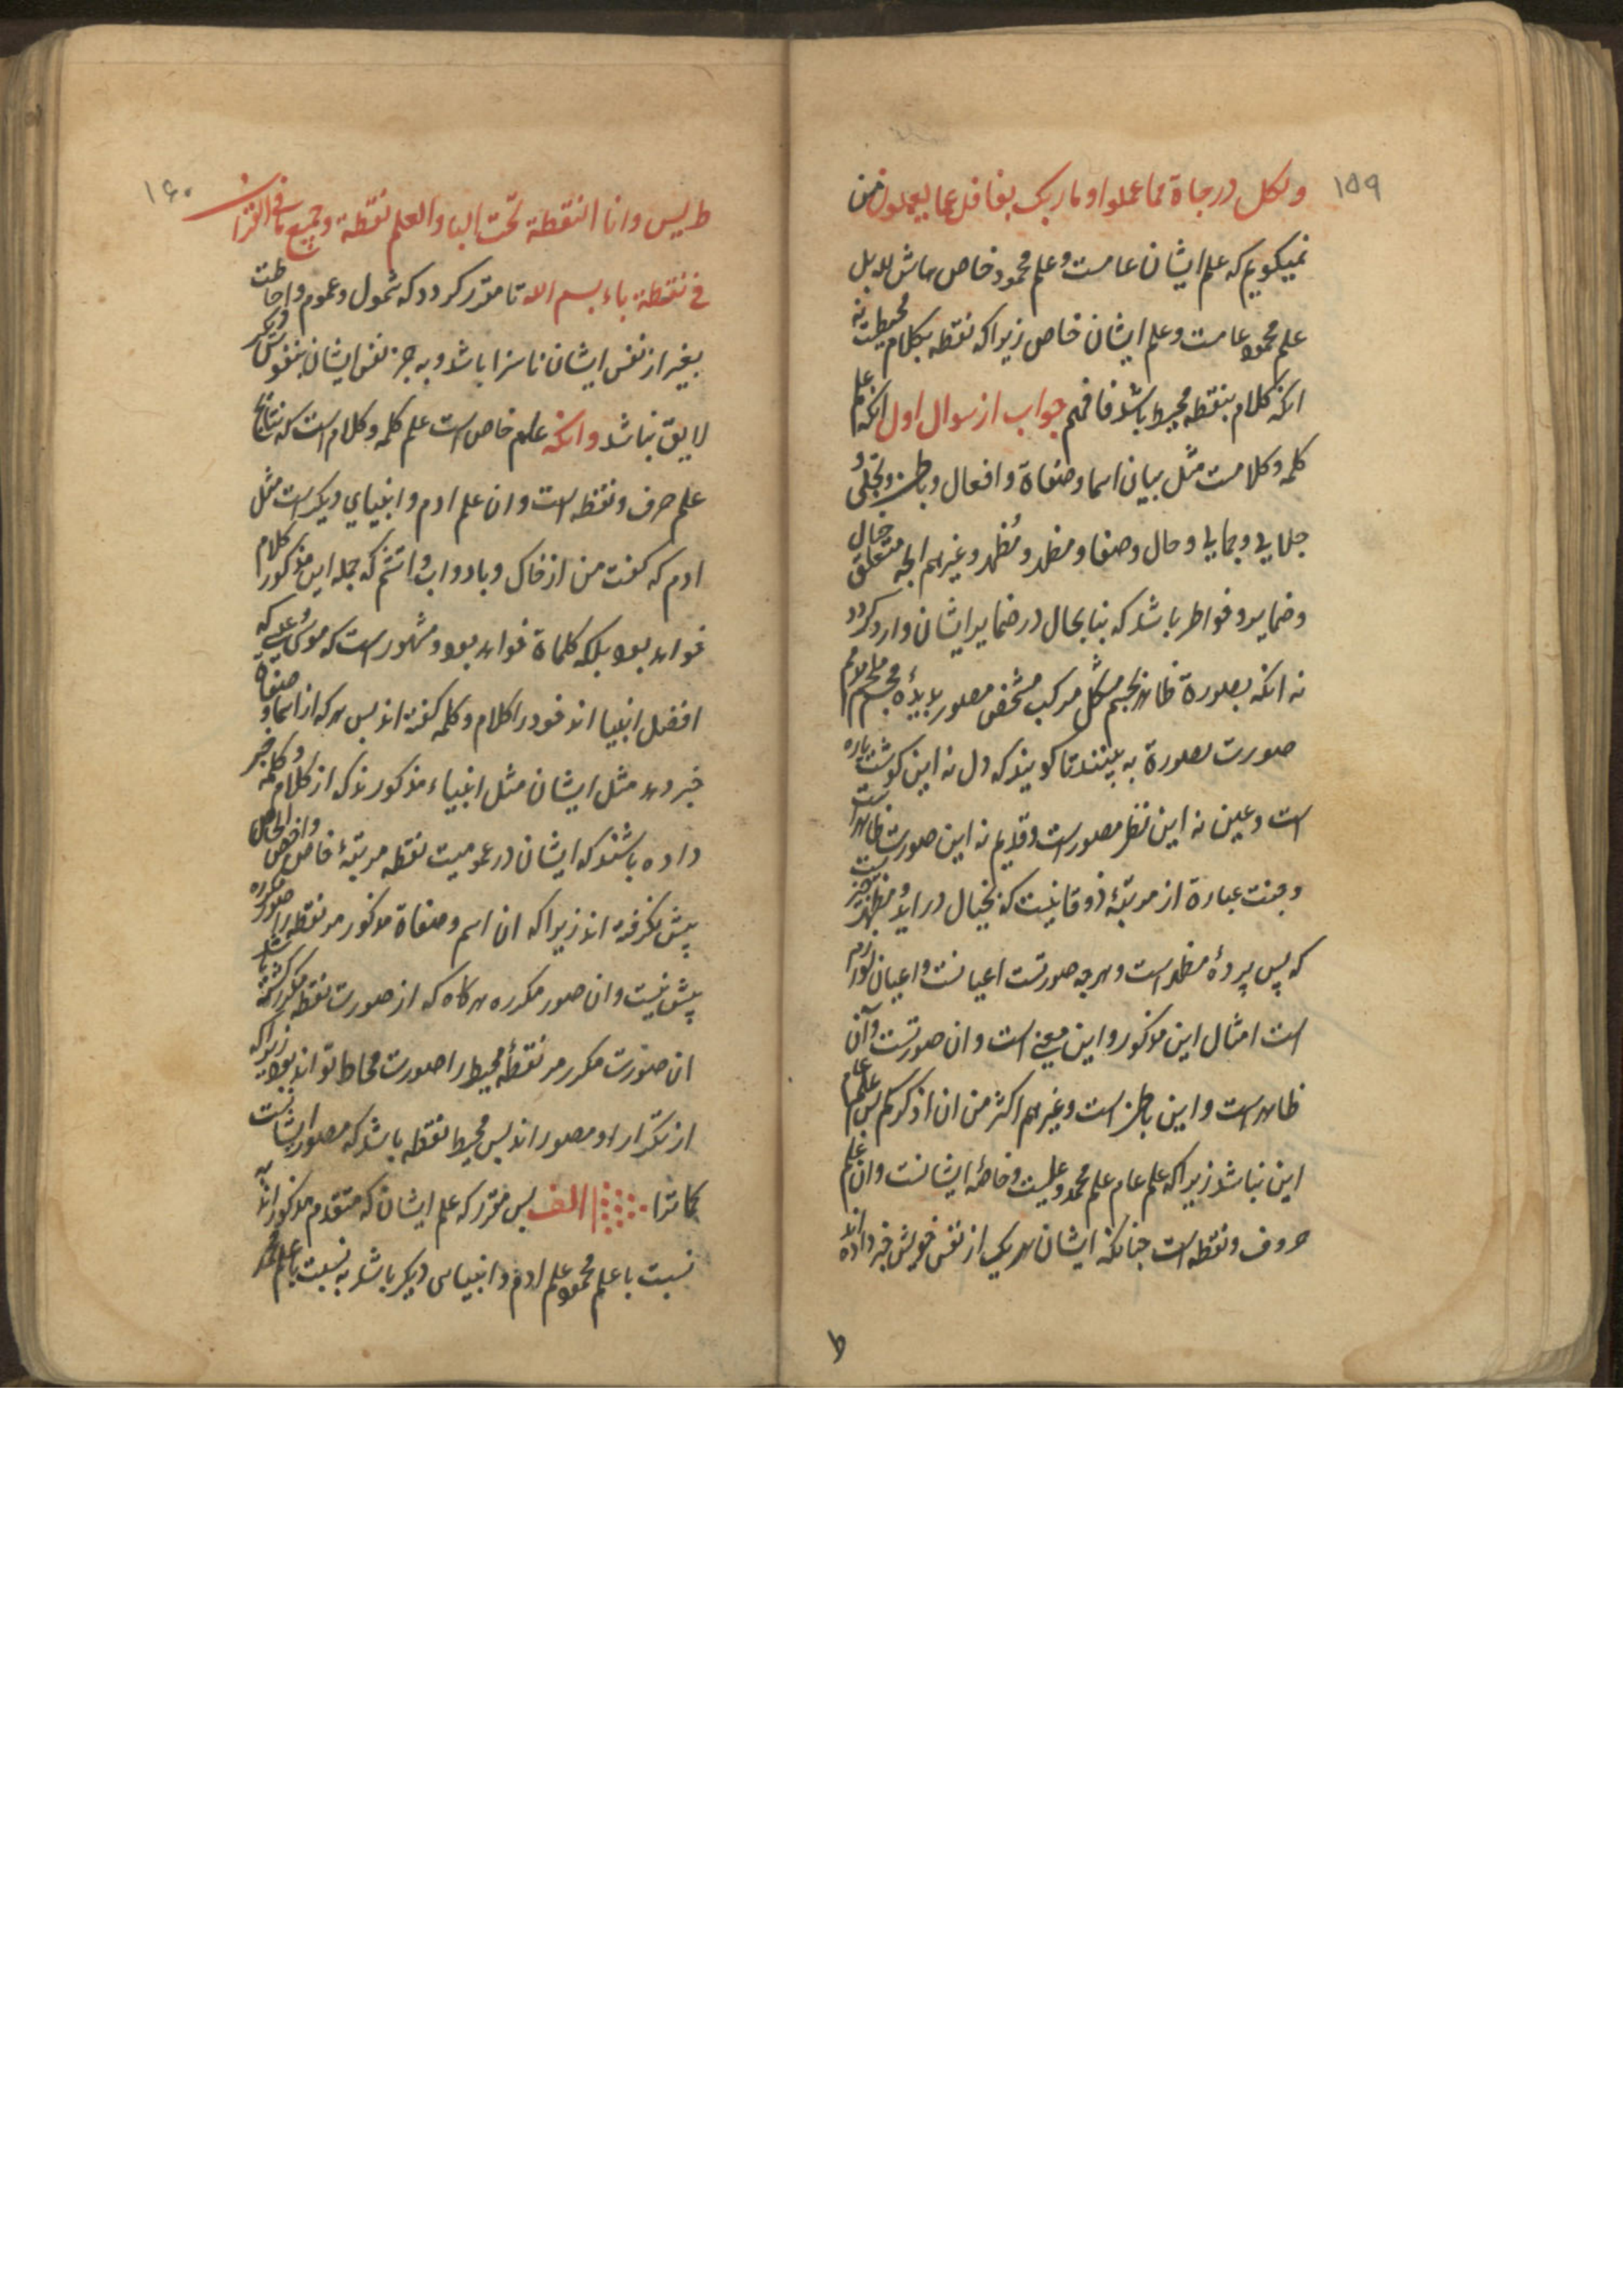 ۱۵۹
ولکل درجاة مما عملوا و ما ربک بغافل عما یعملون من
نمیکویم که علم ایشان عامست و علم محمود خاص حاش لله بل
علم محمود عامست و علم ایشان خاص زیرا که نقطه بکلام محیطست نه
انکه کلام بنقطه محیط باشد فافهم جواب از سوال اول انکه علم
کلمه و کلامست مثل بیان اسما و صفاة و افعال و باطن و تجلی
جلالی و جمالی و حال و صفا و مظهر و مُظهر و غیرهم الجه متعلق خیال
و ضمایر و خواطر باشد که بنا بحال در ضمایر ایشان وارد کردد
نه انکه بصورة ظاهر بجسم مشکل مرکب مشخص مصور بدیدۀ مجسم
صورت بصورة به بینند تا کویند که دل نه این کوشت پاره
است و عین نه این نظر مصورست و قدیم نه این صورت ظاهرست
و جنت عبارة از مرتبۀ ذوقانیست که بخیال در اید و مظهر
که پس پردۀ مظهرست و هرجه صورتست اعیانست و اعیان
است امثال این مذکور و این معنی است و ان صورتست و آن
ظاهرست و این باطن است و غیرهم اکثر من ان اذکرکم بس علم عام
این نباشد زیرا که علم عام علم محمد و علیست و خاصۀ ایشانست و ان علم
حروف و نقطه است جنانکه ایشان هریک از نفس خویش خبر داده اند
ط
۱۶۰
طریس وانا النقطة تحت البا والعلم نقطة و جمیع ما فی القران
فی نقطة باء بسم الله تا مقرر کردد که شمول و عموم و احاطت
بغیر از نفس ایشان ناسزا باشد و به جز نفس ایشان بنفوس دیکر
لایق نباشد و انکه علم خاص است علم کلمه و کلام است که نتایج
علم حرف و نقطه است و ان علم ادم و انبیای دیکرست مثل
ادم که کفت من از خاک و باد و اب و اتشم که جمله این مذکور کلام
خواهد بود بلکه کلماة خواهد بود و مشهورست که موسی و عیسی که
افضل انبیا اند خود را کلام و کلمه کفته اند بس هرکه از اسما و صفاة
خبر دهد مثل ایشان مثل انبیاء مذکورند که از کلام و کلمه خبر
داده باشند که ایشان در عمومیت نقطه مرتبۀ خاص و اخص الخاص
پیش نکرفته اند زیرا که ان اسم و صفاة مذکور مر نقطه را صور مکرره
پیش نیست و ان صور مکرره هرکاه که از صورت نقطه مکرر کشته باشد
ان صورت مکرر مر نقطۀ محیط را صورت محاط تواند بود زیرا که
از تکرار او مصور اند بس محیط نقطه باشد که مصور ایشانست
کما ترا الف بس مقرر که علم ایشان که متقدم مذکور اند به
نسبت با علم محمود علم ادم و انبیای دیکر باشد به نسبت با علم محمد